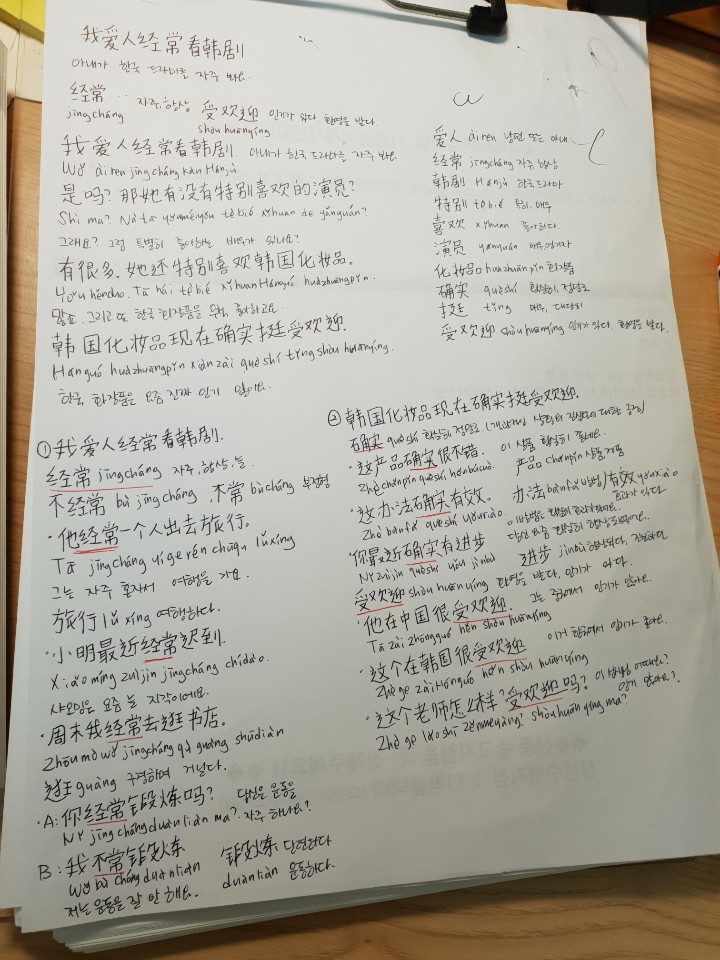 我爱人经常看韩剧
아내가 한국 드라마를 자주 봐요.
经常... 자주, 항상 受欢迎 인기가 있다. 환영을 받다
jīngcháng shòu huānyíng
我爱人经常看韩剧. 아내가 한국 드라마를 자주 봐요.
Wǒ àiren jīngcháng kàn Hánjù
是吗? 那她有没有特别喜欢的演员?
Shì ma? Nà tā yǒuméiyǒu tèbié xǐhuan de yǎnyuán?
그래요? 그럼 특별히 좋아하는 배우가 있나요?
有很多. 她还特别喜欢韩国化妆品。
Yǒu hěnduō. Tā hái tèbié xǐhuan Hánguó huàzhuāngpǐn.
많죠. 그리고 또 한국 화장품을 무척 좋아하고요.
韩国化妆品现在确实挺受欢迎.
Hánguó huàzhuāngpǐn xiànzài quèshí tǐng shòu huānyíng.
한국 화장품은 요즘 진짜 인기 많아요.
爱人 àiren 남편 또는 아내
经常 jīngcháng 자주, 항상
韩剧 Hánjù 한국 드라마
特别 tèbié 특히, 매우
喜欢 xǐhuan 좋아하다.
演员 yǎnyuán 배우, 연기자
化妆品 huàzhuāngpǐn 화장품
确实 quèshí 확실히, 정말로
挺 tǐng 매우, 대단히
受欢迎 shòu huānyíng 인기가 있다. 환영을 받다.
① 我爱人经常看韩剧.
经常 jīngcháng 자주, 항상, 늘
不经常 bù jīngcháng, 不常 bùcháng 부정형
· 他经常一个人出去旅行。
Tā jīngcháng yí ge rén chūqu lǚxíng
그는 자주 혼자서 여행을 가요.
旅行 lǚxíng 여행하다.
· 小明最近经常迟到.
Xiǎomíng zuìjìn jīngcháng chídào.
샤오밍은 요즘 늘 지각이에요.
· 周末我经常去逛书店。
Zhōumò wǒ jīngcháng qù guàng shūdiàn
逛 guàng 구경하며 거닐다.
· A: 你经常锻炼吗? 당신은 운동을
Nǐ jīngcháng duànliàn ma? 자주 하나요?
B: 我不常锻炼 锻炼 단련하다
Wǒ bù cháng duànliàn duànliàn 운동하다.
저는 운동을 잘 안 해요.
② 韩国化妆品现在确实挺受欢迎.
确实 quèshí 확실히, 정말로
· 这产品确实很不错. 이 상품 확실히 좋네요.
Zhè chǎnpǐn quèshí hěn búcuò. 产品 chǎnpǐn 상품, 제품
· 这办法确实有效。 办法 bànfǎ 방법 / 有效 yǒuxiào
Zhè bànfǎ quèshí yǒuxiào. 효과가 있다.
你最近确实有进步 进步 jìnbù 향상되다, 진보하다
Nǐ zuìjìn quèshí yǒu jìnbù
受欢迎 shòu huānyíng 환영을 받다. 인기가 있다.
· 他在中国很受欢迎. 그는 중국에서 인기가 많아요.
Tā zài Zhōngguó hěn shòu huānyíng
· 这个在韩国很受欢迎 이거 한국에서 인기가 좋아요.
Zhège zài Hánguó hěn shòu huānyíng
· 这个老师怎么样? 受欢迎吗? 이 선생님 어때요?
Zhè ge lǎoshī zěnmeyàng? Shòu huānyíng ma? 인기 많아요?